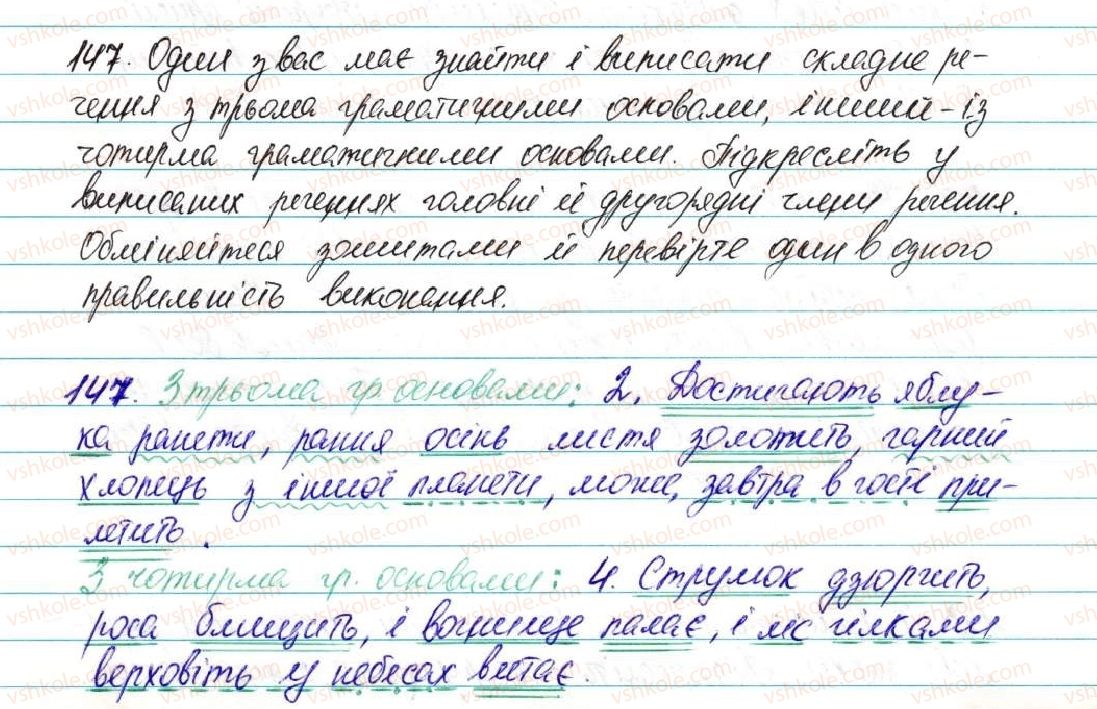 147. Один з вас має знайти і виписати складне ре-
чення з трьома граматичними основами, інший - із
чотирма граматичними основами. Підкресліть у
виписаних реченнях головні й другорядні члени речення.
Обміняйтеся зошитами й перевірте один в одного
правильність виконання.
147. З трьома гр. основами: 2. Достигають яблу-
ка ранети, рання осінь листя золотить, гарний
хлопець з іншої планети, може, завтра в гості при-
летить.
З чотирма гр. основами: 4. Струмок дзюрчить,
роса блищить, і вогнище палає, і ліс гілками
верховіть у небесах витає.